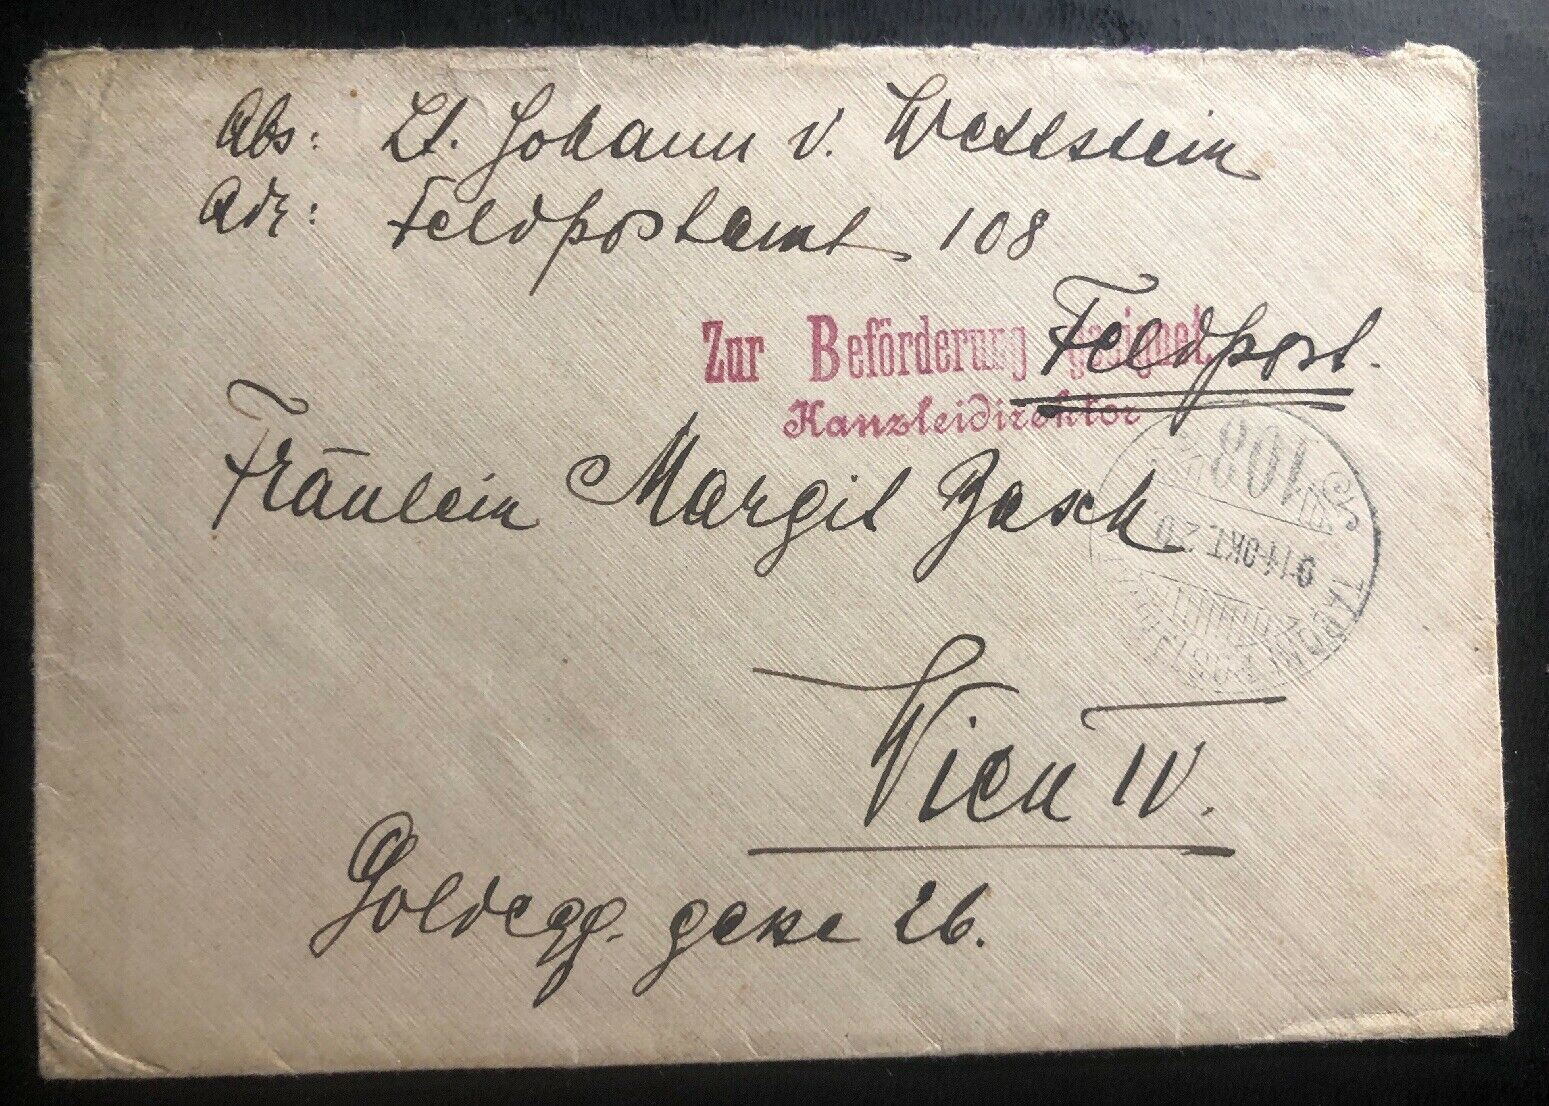 Abs: Lt. Johann v. Wettstein
Adr: Feldpostamt 108
Feldpost.
Zur Beförderung geeignet.
Kanzleidirektor
Fräulein Margit Basch
108
14 OKT. 20
TÁBORI POSTA
Wien IV.
Goldegg. gasse 26.